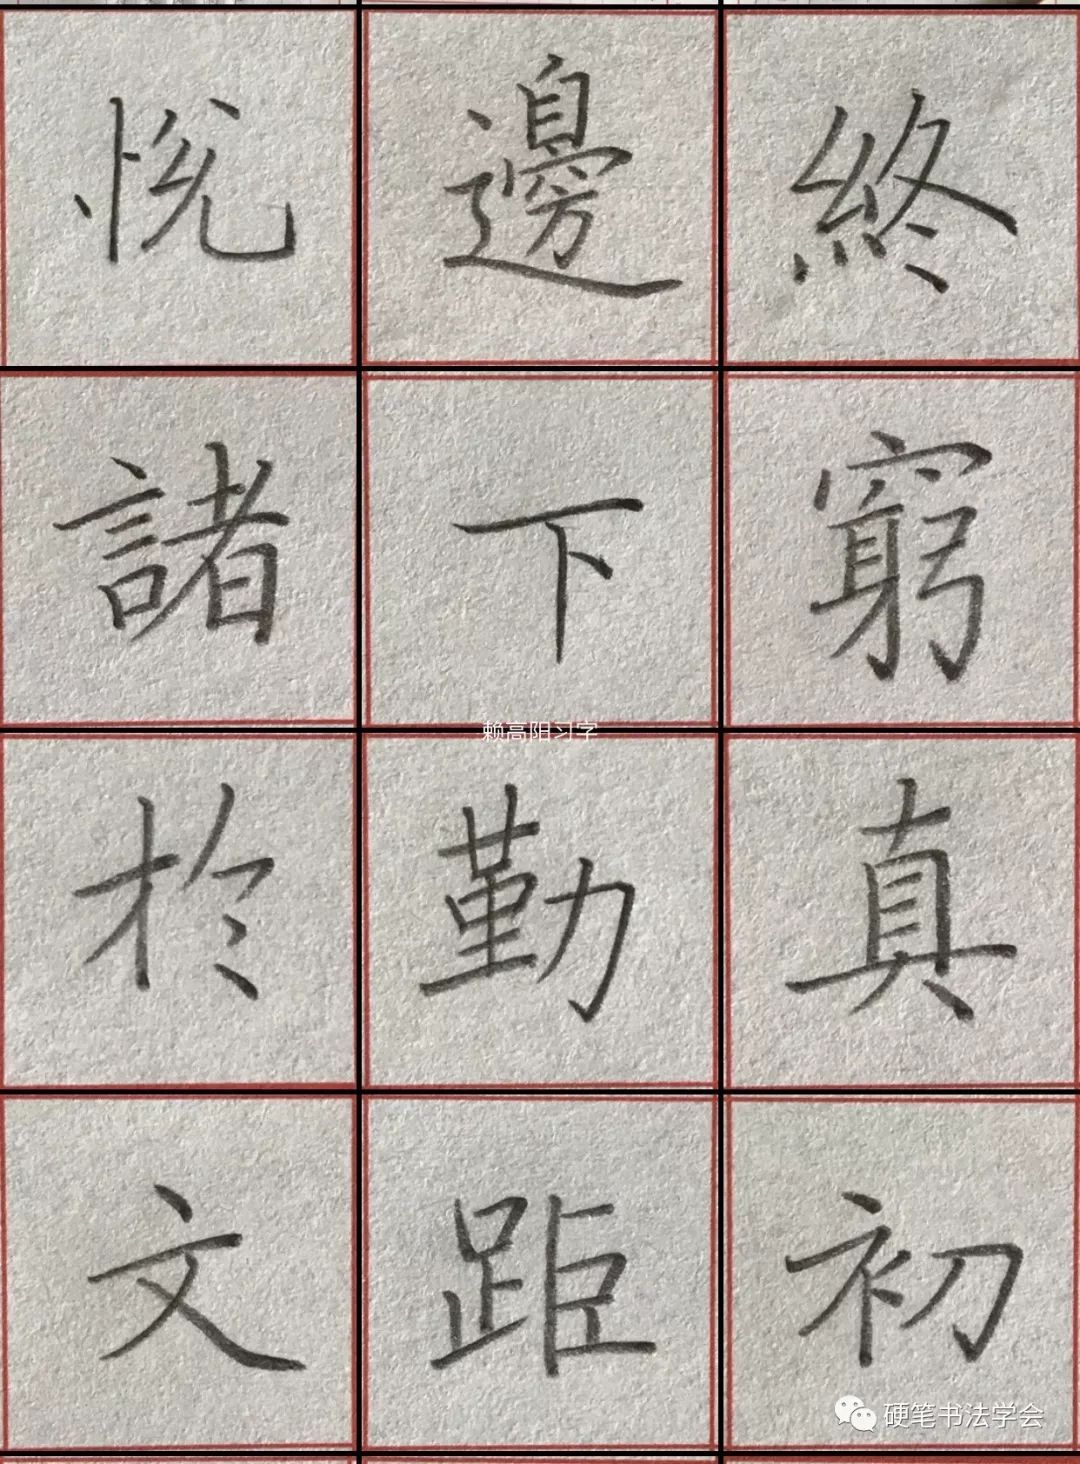 悦邊終
諸下窮
赖高阳习字
於勤真
文距初
硬笔书法学会